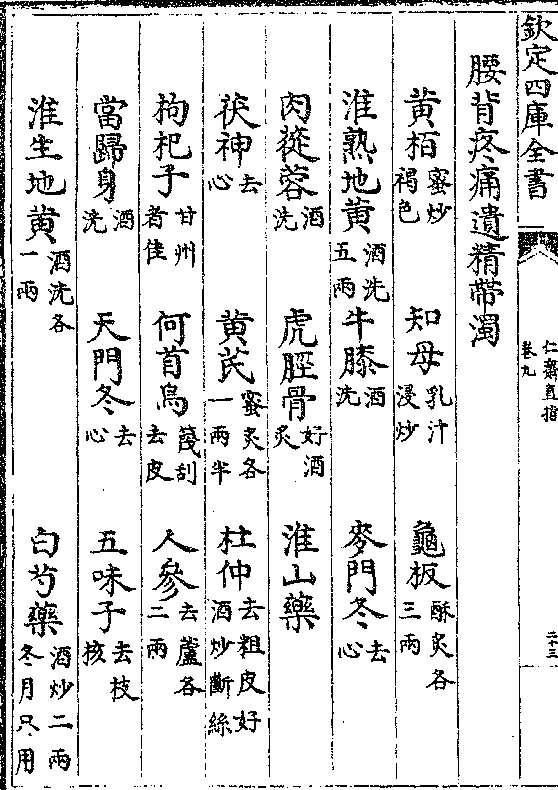 欽定四庫全書
仁齋直指
卷九
二十三
腰背疼痛遺精帶濁
黃栢蜜炒褐色 知母乳汁浸炒 龜板酥炙各三兩
淮熟地黃酒洗五兩 牛膝酒洗 麥門冬去心
肉蓯蓉酒洗 虎脛骨好酒炙 淮山藥
茯神去心 黃芪蜜炙各一兩半 杜仲去粗皮好酒炒斷絲
枸杞子甘州者佳 何首烏篾刮去皮 人參去蘆各二兩
當歸身酒洗 天門冬去心 五味子去枝核
淮生地黃酒洗各一兩 白芍藥酒炒二兩冬月只用